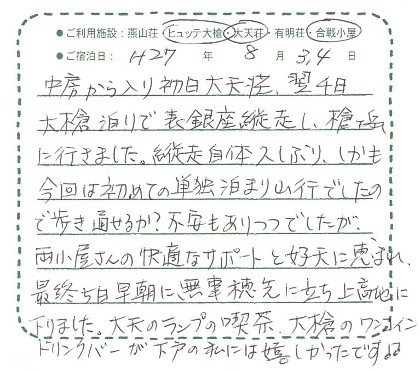 ●ご利用施設：燕山荘・ヒュッテ大槍・大天荘・有明荘・合戦小屋
●ご宿泊日：H27 年 8 月 3,4 日
中房から入り初日大天荘、翌4日
大槍泊りで表銀座縦走し、槍ヶ岳
に行きました。縦走自体久しぶり、しかも
今回は初めての単独泊まり山行でしたの
で歩き通せるか?不安もありつつでしたが、
両小屋さんの快適なサポートと好天に恵まれ、
最終5日早朝に、無事穂先に立ち上高地に
下りました。大天のランプの喫茶、大槍のワンコイン
ドリンクバーが下戸の私には嬉しかったです